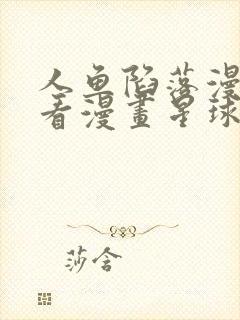 人鱼陷落漫
看漫畫星球
莎含